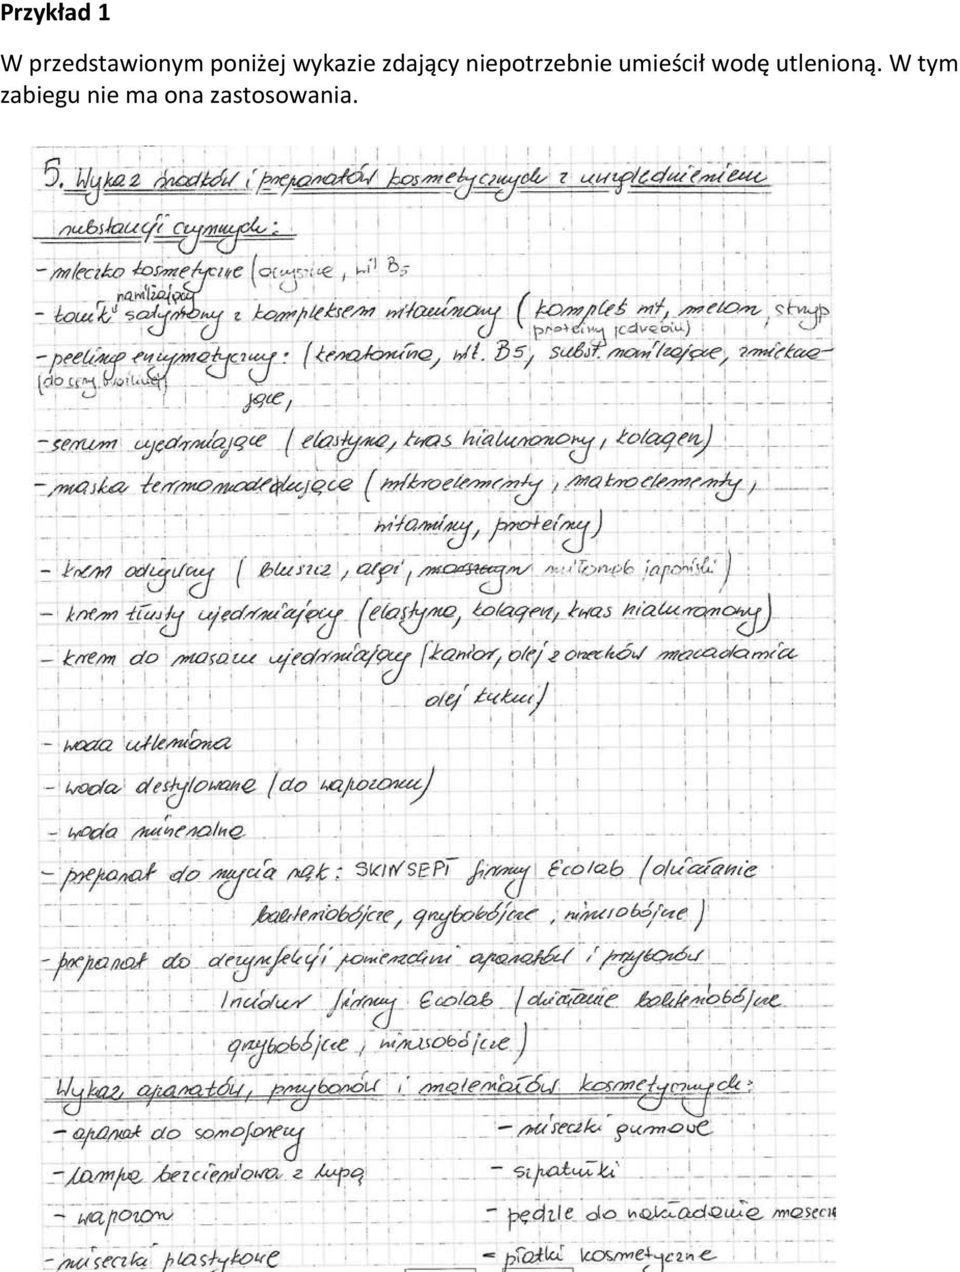 Przykład 1
W przedstawionym poniżej wykazie zdający niepotrzebnie umieścił wodę utlenioną. W tym
zabiegu nie ma ona zastosowania.
5. Wykaz środków i preparatów kosmetycznych z uwzględnieniem
substancji czynnych:
- mleczko kosmetyczne (oczyszcz, wit B5
nawilżający
- tonik satynowy z kompleksem witaminowy ( komplet wit, melon,
proteiny jedwabiu)
- peeling enzymatyczny: (keratonina, wit. B5, subst. nawilżające, zmiękcza-
(do cery wrażliwej)
jące,
- serum ujędrniające ( elastyna, kwas hialuronowy, kolagen)
- maska termomodelująca ( mikroelementy, makroelementy,
witaminy, proteiny)
- krem odżywczy ( bluszcz, algi, miłorząb japoński )
- krem tłusty ujędrniający (elastyna, kolagen, kwas hialuronowy)
- krem do masażu ujędrniający (kamfor, olej z orzechów macadamia
olej kukui)
- woda utleniona
- woda destylowana (do wapozonu)
- woda mineralna
- preparat do mycia rąk: SKINSEPT firmy Ecolab (działanie
bakteriobójcze, grzybobójcze, wirusobójcze )
- preparat do dezynfekcji powierzchni aparatów i przyborów
Incidur firmy Ecolab (działanie bakteriobójcze
grzybobójcze, wirusobójcze )
Wykaz aparatów, przyborów i materiałów kosmetycznych:
- aparat do sonoforezy - miseczki gumowe
- lampa bezcieniowa z lupą - szpatułki
- wapozon - pędzle do nakładania masecz
- miseczki plastykowe - płatki kosmetyczne